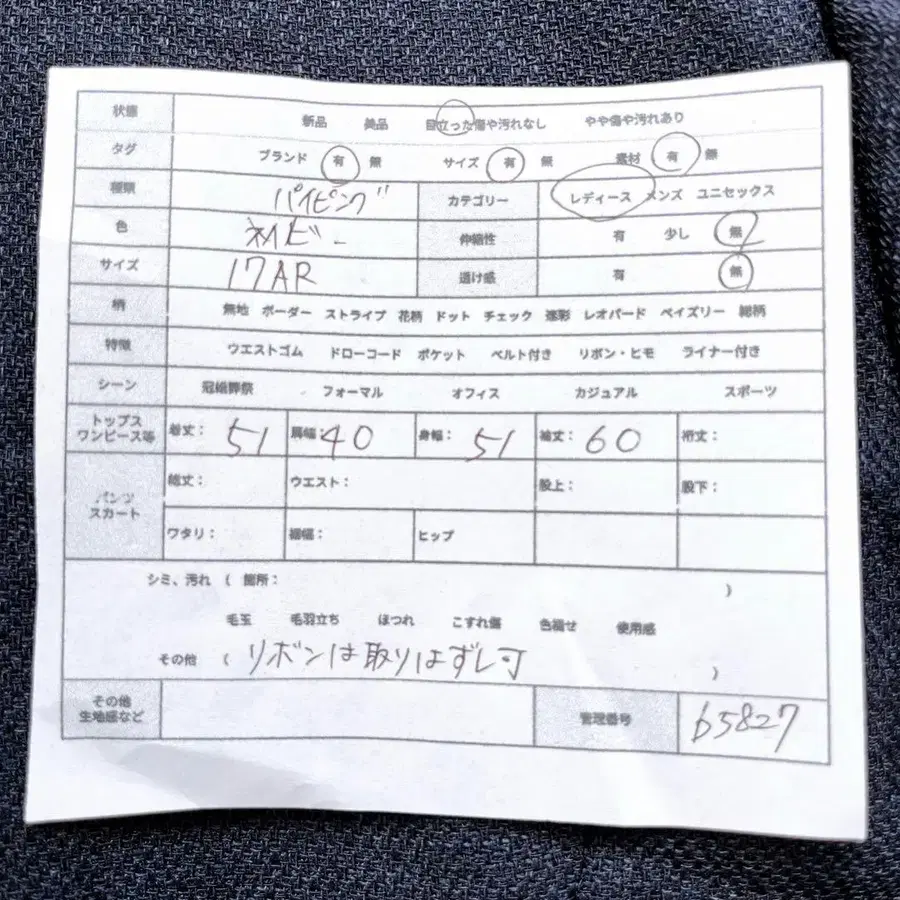 状態 新品 美品 目立った傷や汚れなし やや傷や汚れあり
タグ ブランド 有 無 サイズ 有 無 素材 有 無
種類 パイピング カテゴリー レディース メンズ ユニセックス
色 ネイビー 伸縮性 有 少し 無
サイズ 17AR 透け感 有 無
柄 無地 ボーダー ストライプ 花柄 ドット チェック 迷彩 レオパード ペイズリー 総柄
特徴 ウエストゴム ドローコード ポケット ベルト付き リボン・ヒモ ライナー付き
シーン 冠婚葬祭 フォーマル オフィス カジュアル スポーツ
トップス
ワンピース等 着丈: 51 肩幅: 40 身幅: 51 袖丈: 60 裄丈:
パンツ
スカート 総丈: ウエスト: 股上: 股下:
ワタリ: 裾幅: ヒップ
シミ、汚れ ( 箇所: )
毛玉 毛羽立ち ほつれ こすれ傷 色褪せ 使用感
その他 ( リボンは取りはずし可 )
その他
生地感など 管理番号 65827